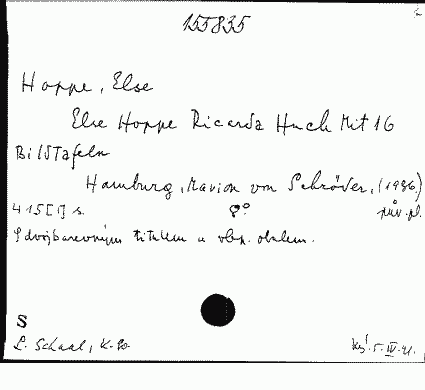 155835
Hoppe, Else
Else Hoppe Ricarda Huch Mit 16
Bildtafeln
Hamburg, Marion von Schröder, (1936)
415[1] s. 8° pův. pl.
S dvojbarevným titulem a obp. obalem.
S
L. Schaal, K. Bo
5. IV. 41.